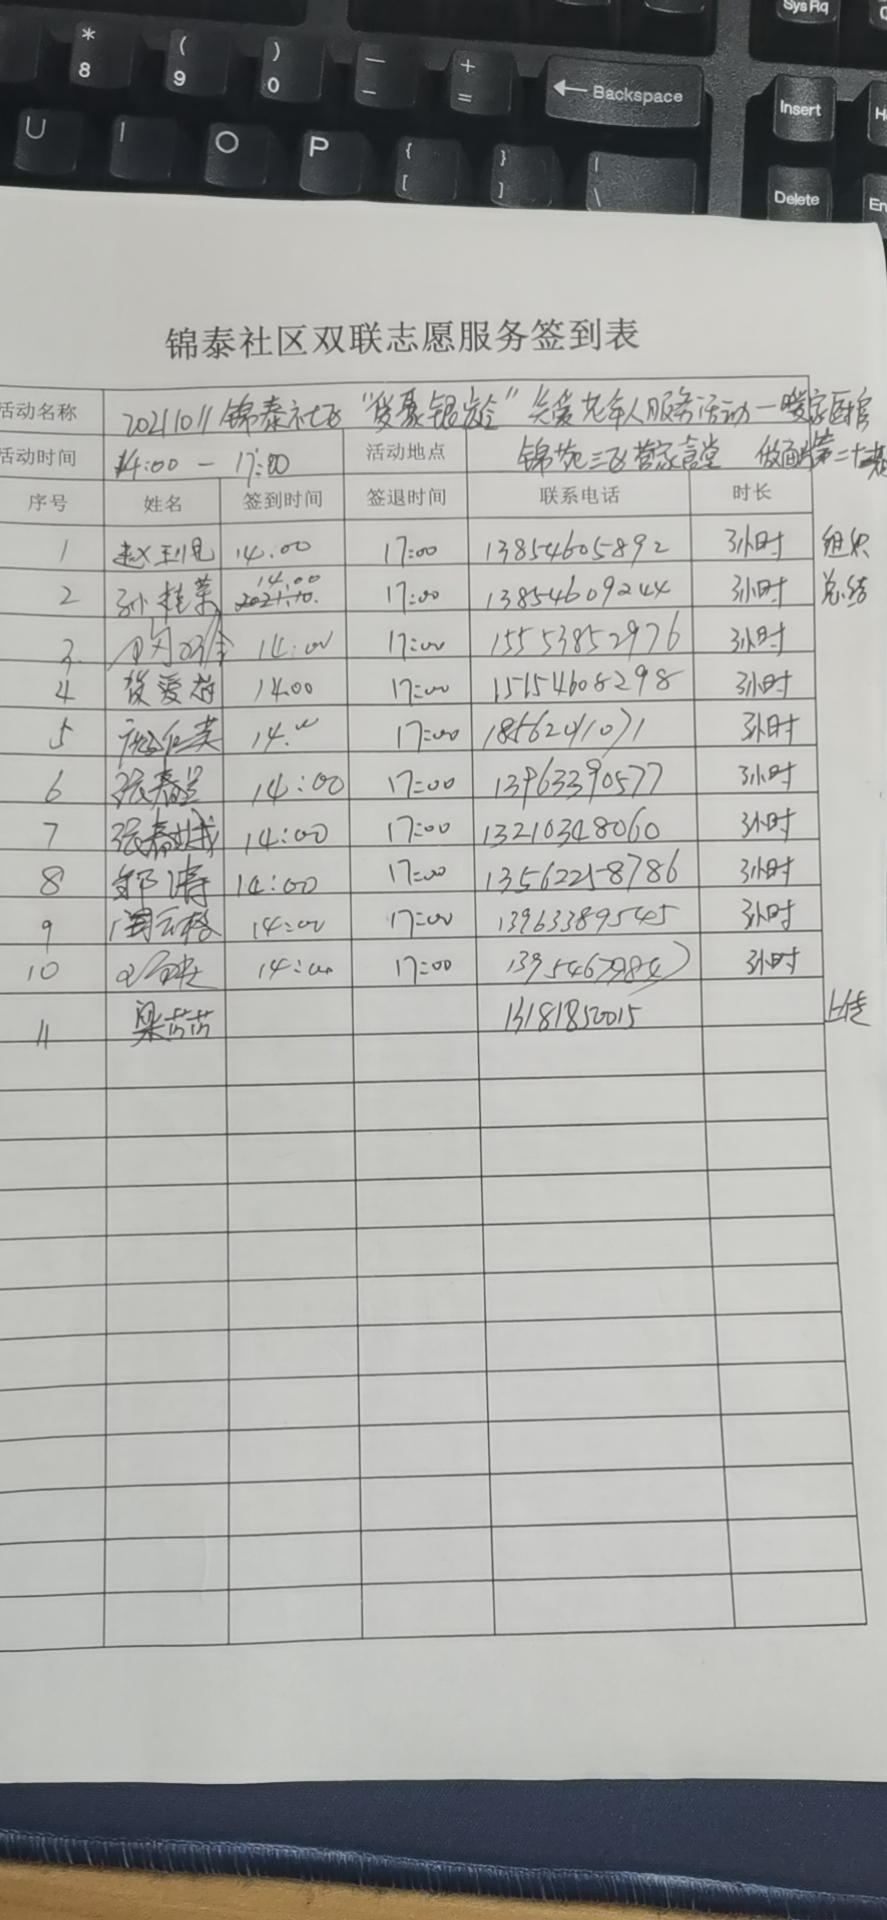 * 8 ( 9 ) 0 — - + = ← Backspace SysRq
U I O P { [ } ] | \ Insert
Delete
锦泰社区双联志愿服务签到表
活动名称 20211011锦泰社区“爱聚银龄”关爱老年人服务活动一暖家医指
活动时间 14:00 — 17:00 活动地点 锦苑三区 食堂
序号 姓名 签到时间 签退时间 联系电话 时长
1 14:00 17:00 13854605892 3小时 组织
2 孙桂荣 14:00 17:00 13854609244 3小时 总结
3. 14:00 17:00 15553852976 3小时
4 14:00 17:00 15154608298 3小时
5 14:00 17:00 3小时
6 14:00 17:00 13963390577 3小时
7 张春娥 14:00 17:00 13210348060 3小时
8 邹涛 14:00 17:00 13562258786 3小时
9 14:00 17:00 13963389545 3小时
10 14:00 17:00 3小时
11 梁芸芸 13181852015 上传